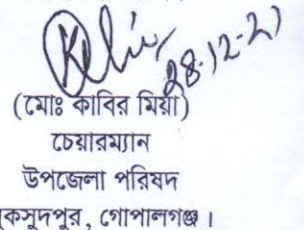 28-12-21
(মোঃ কাবির মিয়া)
চেয়ারম্যান
উপজেলা পরিষদ
কসুদপুর, গোপালগঞ্জ।